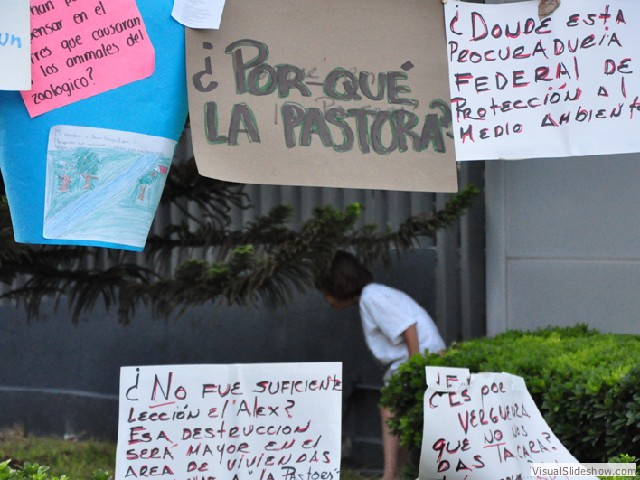 un
nan por
pensar en el
tres que causaran
los animales del
zoologico?
¿POR QUÉ
LA PASTORA?
¿DONDE ESTA
PROCURADURIA
FEDERAL DE
PROTECCIÓN AL
MEDIO AMBIENTE
¿NO FUE SUFICIENTE
LECCIÓN el "Alex?
ESA DESTRUCCION
SERA MAYOR EN EL
AREA DE VIVIENDAS
QUE A "LA Pastora"
¿ES POR
VERGUENZA
QUE NO NOS
DAS LA CARA?
VisualSlideshow.com